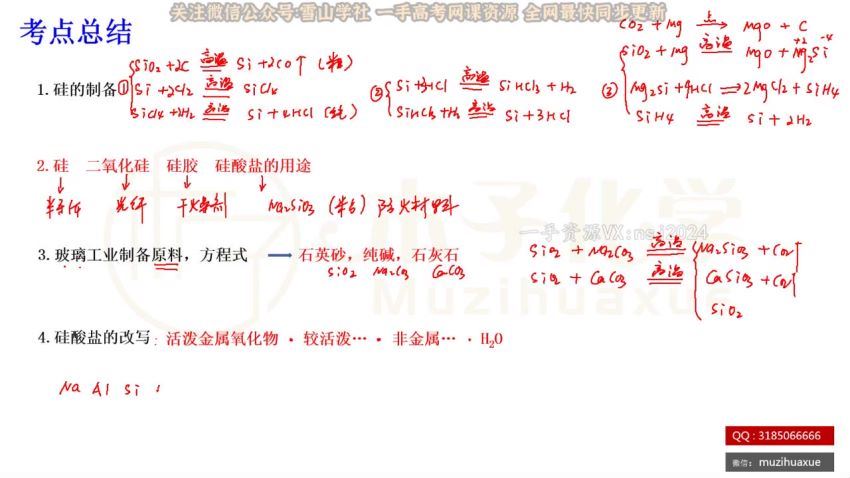 关注微信公众号:雪山学社 一手高考网课资源 全网最快同步更新
考点总结
1. 硅的制备
① SiO2 +2C 高温 Si +2CO↑ (粗)
Si +2Cl2 高温 SiCl4
SiCl4 +2H2 高温 Si +4HCl (纯)
② Si +3HCl 高温 SiHCl3 + H2
SiHCl3 + H2 高温 Si + 3HCl
CO2 + Mg 点 MgO + C
SiO2 + Mg 高温 MgO + Mg2Si
+2 -4
③ Mg2Si +4HCl 2MgCl2 + SiH4
SiH4 高温 Si + 2H2
2. 硅 二氧化硅 硅胶 硅酸盐的用途
半导体 光纤 干燥剂 Na2SiO3 (粘合) 防火材料
一手资源VX:nsj2024
小子化学
Muzihuaxue
3. 玻璃工业制备原料，方程式 → 石英砂，纯碱，石灰石
SiO2 Na2CO3 CaCO3
SiO2 + Na2CO3 高温 Na2SiO3 + CO2↑
SiO2 + CaCO3 高温 CaSiO3 + CO2↑
SiO2
4. 硅酸盐的改写: 活泼金属氧化物 · 较活泼… · 非金属… · H2O
Na Al Si
QQ : 3185066666
微信: muzihuaxue